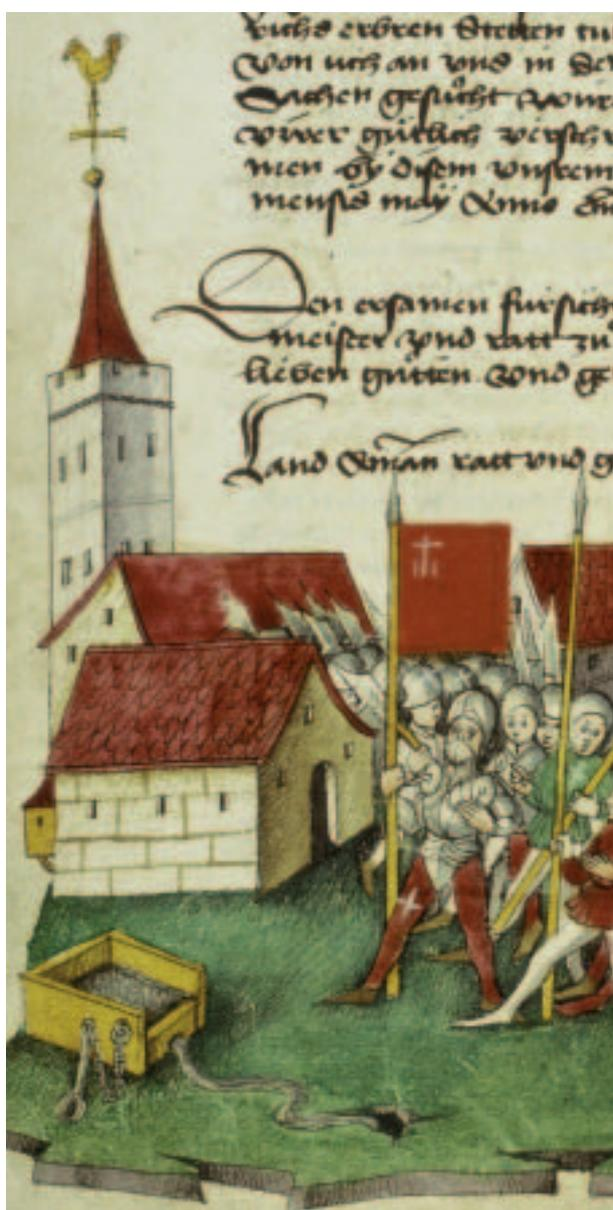 Richs erbren Stetten tu
Von uch an uns in Se
Sachen gesücht wur
vwer gütlich versch
men by disem unsrem
mensis may Anno
Den ersamen fursich
meister vnd ratt zu
lieben gütten vnd ge
Land Aman ratt vnd g